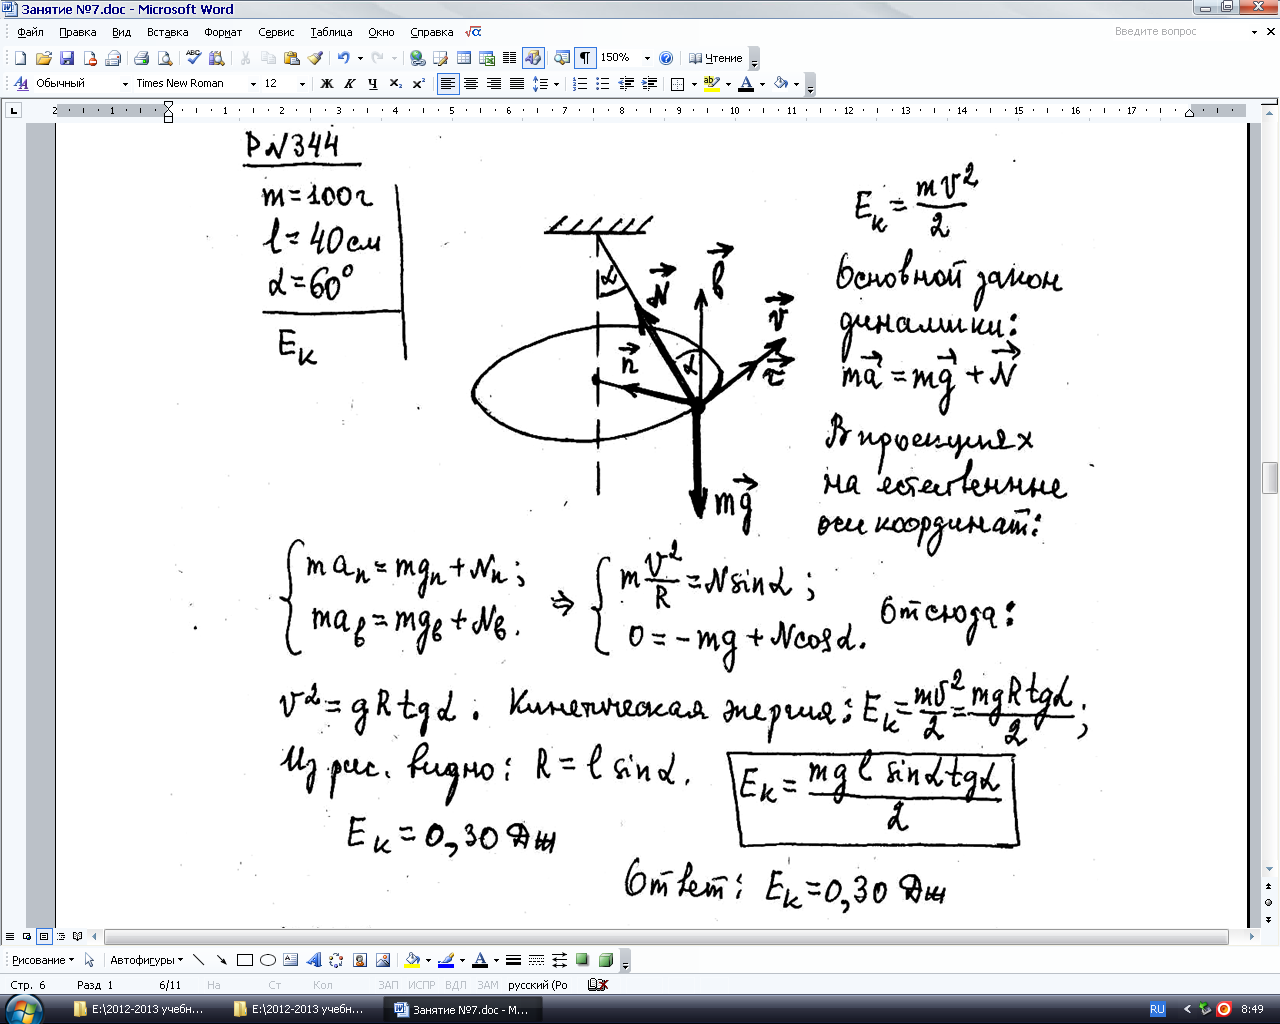 Занятие №7.doc - Microsoft Word
Файл Правка Вид Вставка Формат Сервис Таблица Окно Справка √α Введите вопрос
150% Чтение
Обычный Times New Roman 12 Ж К Ч x₂ x²
2 1 1 2 3 4 5 6 7 8 9 10 11 12 13 14 15 16 17
Р№344
m=100г
l=40см
α=60°
Eк
α
N
в
v
n
α
τ
mg
Eк = mv²/2
Основной закон
динамики:
ma = mg + N
В проекциях
на естественные
оси координат:
maₙ=mgₙ+Nₙ; ⇒ m v²/R = N sinα;
maв=mgв+Nв. 0=-mg+Ncosα. Отсюда:
v²=gRtgα. Кинетическая энергия: Eк=mv²/2=mgRtgα/2;
Из рис. видно: R=l sinα. Eк = mgl sinα tgα/2
Eк=0,30 Дж
Ответ: Eк=0,30 Дж
Рисование Автофигуры
Стр. 6 Разд 1 6/11 На Ст Кол ЗАП ИСПР ВДЛ ЗАМ русский (Ро
E:\2012-2013 учебн... E:\2012-2013 учебн... Занятие №7.doc - M... RU 8:49